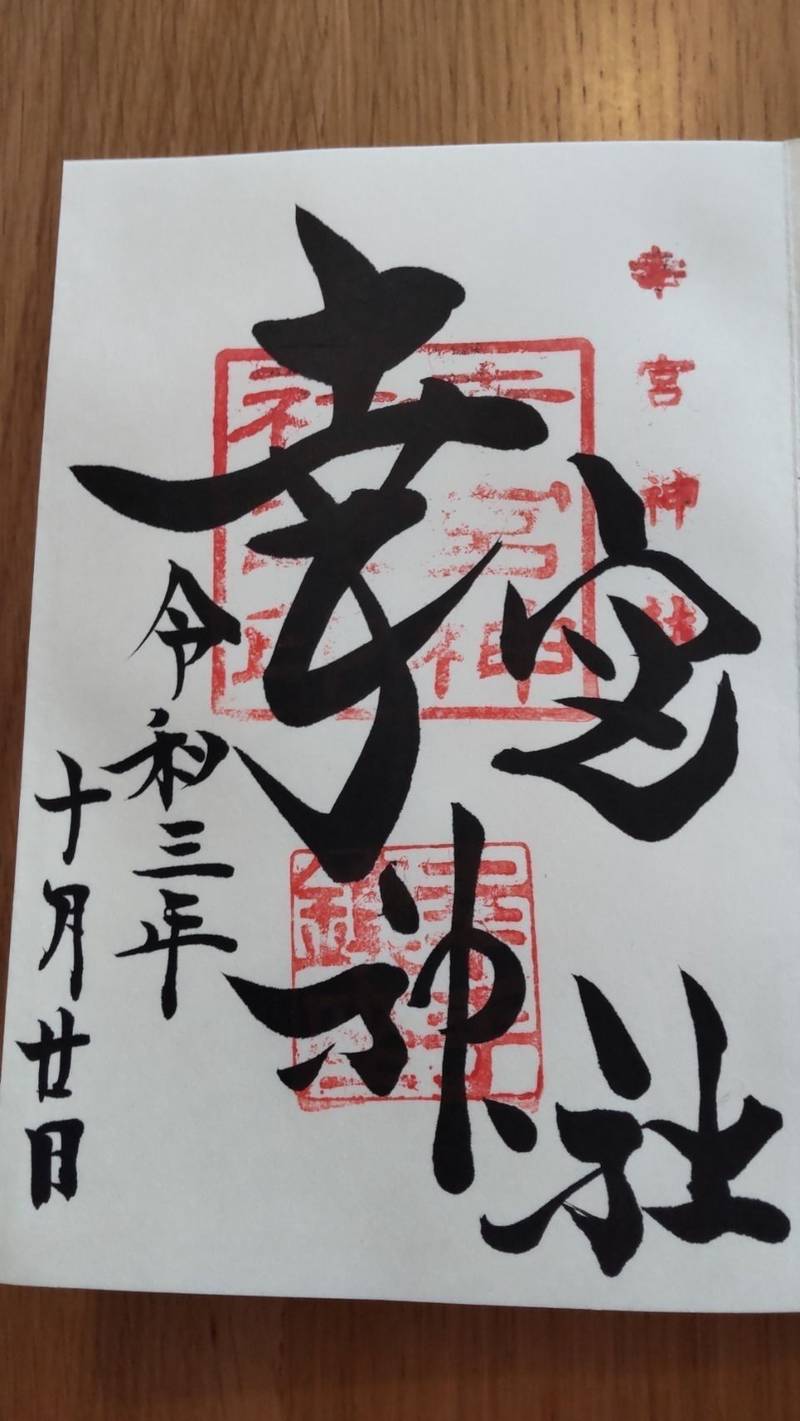 幸宮神社
幸宮神社
令和三年
十月廿日